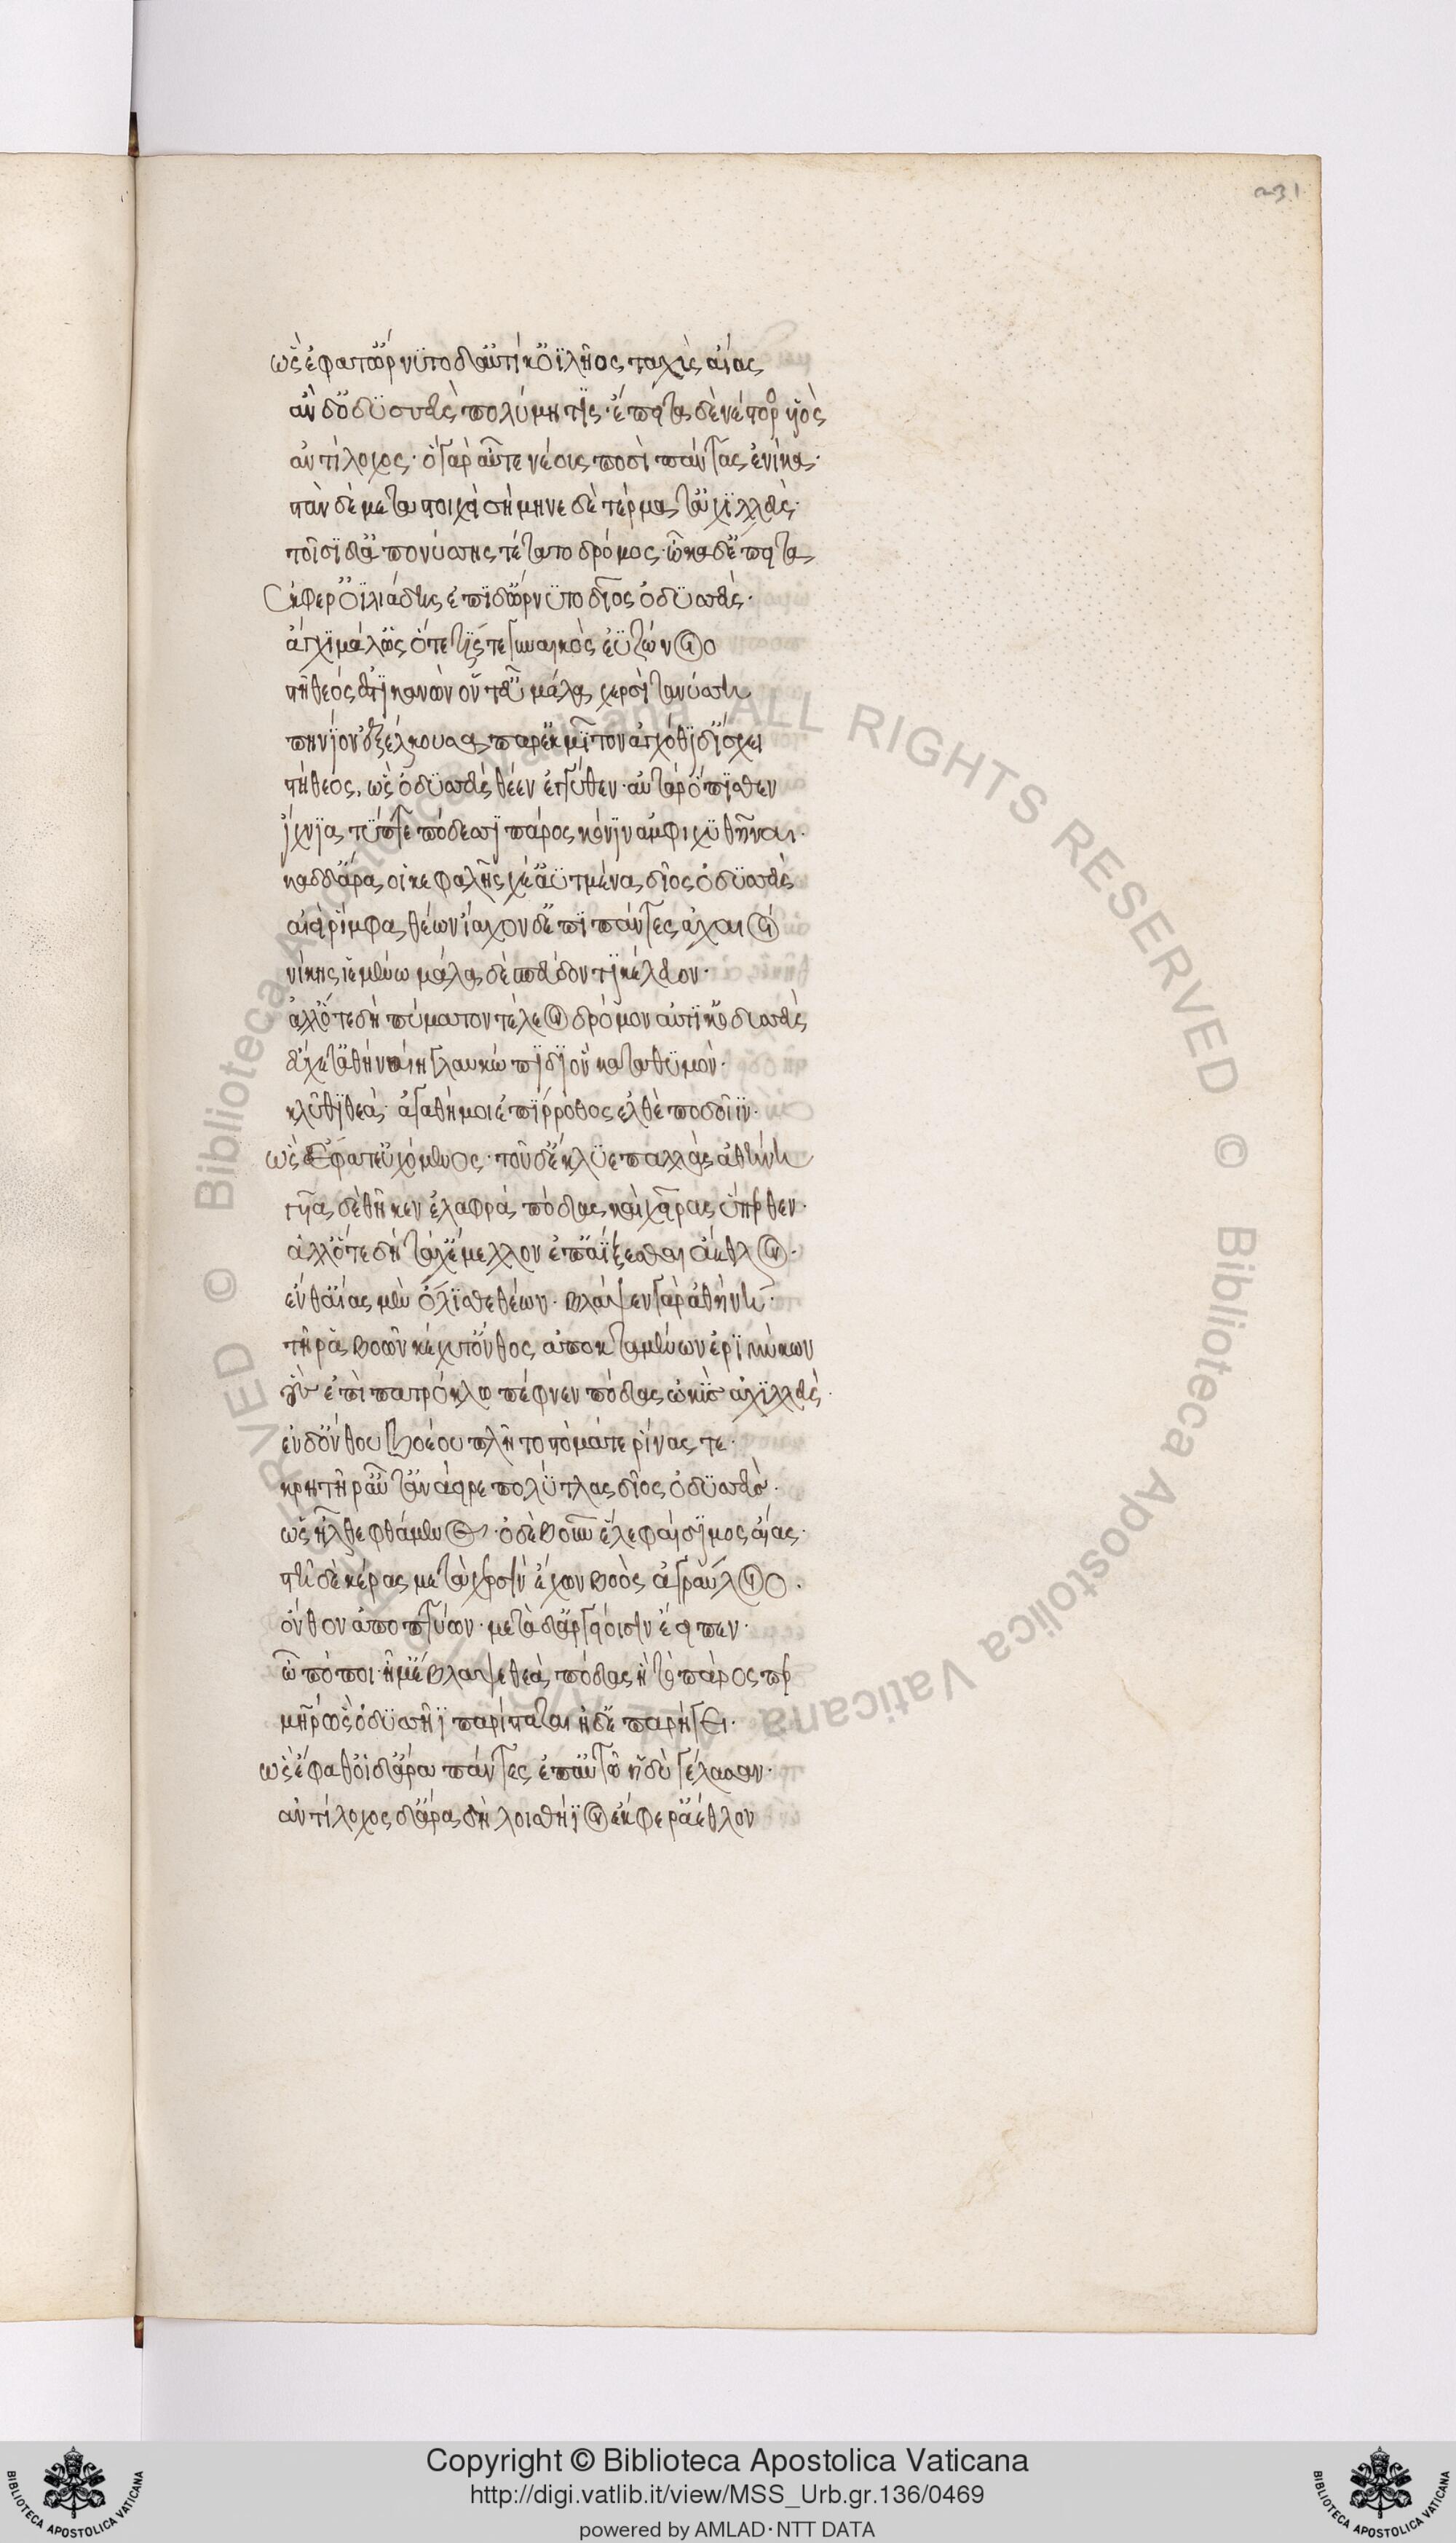 231
ὣς ἔφατ' ὤρνυτο δ' αὐτίκ' ὀϊλῆος ταχὺς αἴας
ἂν δ' ὀδυσσεὺς πολύμητις· ἔπειτα δὲ νέστορος υἱὸς
ἀντίλοχος· ὁ γὰρ αὖτε νέους ποσὶ πάντας ἐνίκα·
στὰν δὲ μεταστοιχὶ σήμηνε δὲ τέρματ' ἀχιλλεὺς·
τοῖσι δ' ἀπο νύσσης τέτατο δρόμος· ὦκα δ' ἔπειτα
ἔκφερ' ὀϊλιάδης ἐπὶ δ' ὤρνυτο δῖος ὀδυσσεὺς·
ἄγχι μάλ' ὡς ὅτε τίς τε γυναικὸς ἐϋζώνοιο
στῆθεός ἐστι κανὼν ὅν τ' εὖ μάλα χερσὶ τανύσση
πηνίον ἐξέλκουσα παρὲκ μίτον ἀγχόθι δ' ἴσχει
στήθεος, ὣς ὀδυσσεὺς θέεν ἐγγύθεν· αὐτὰρ ὄπισθεν
ἴχνια τύπτε πόδεσσι πάρος κόνιν ἀμφιχυθῆναι·
καδδ' ἄρα οἱ κεφαλῆς χέ' ἀϋτμένα δῖος ὀδυσσεὺς
αἰεὶ ῥίμφα θέων ἴαχον δ' ἔπι πάντες ἀχαιοί
νίκης ἱεμένω μάλα δὲ σπεύδοντι κέλευον·
ἀλλ' ὅτε δὴ πύματον τέλεον δρόμον αὐτίκ' ὀδυσσεὺς
εὔχετ' ἀθηναίη γλαυκώπιδι ὃν κατὰ θυμὸν·
κλῦθι θεά· ἀγαθή μοι ἐπίρροθος ἐλθὲ ποδοῖϊν·
ὣς ἔφατ' εὐχόμενος· τοῦ δ' ἔκλυε παλλὰς ἀθήνη
γυῖα δ' ἔθηκεν ἐλαφρὰ πόδας καὶ χεῖρας ὕπερθεν·
ἀλλ' ὅτε δὴ τάχ' ἔμελλον ἐπαΐξεσθαι ἄεθλον·
ἔνθ' αἴας μὲν ὄλισθε θέων· βλάψεν γὰρ ἀθήνη·
τῆ ῥα βοῶν κέχυτ' ὄνθος ἀποκταμένων ἐριμύκων
οὓς ἐπὶ πατρόκλω πέφνεν πόδας ὠκὺς ἀχιλλεὺς·
ἐν δ' ὄνθου βοέου πλῆτο στόμα τε ῥῖνάς τε·
κρητῆρ' αὖτ' ἀνάειρε πολύτλας δῖος ὀδυσσεὺς·
ὡς ἦλθε φθάμενος· ὁ δὲ βοῦν ἕλε φαίδιμος αἴας·
στῆ δὲ κέρας μετὰ χερσὶν ἔχων βοὸς ἀγραύλοιο·
ὄνθον ἀποπτύων· μετὰ δ' ἀργείοισιν ἔειπεν·
ὦ πόποι ἦ μ' ἔβλαψε θεὰ πόδας ἣ τὸ πάρος περ
μήτηρ ὣς ὀδυσῆϊ παρίσταται ἠδ' ἐπαρήγει·
ὣς ἔφαθ' οἱ δ' ἄρα πάντες ἐπ' αὐτῶ ἡδὺ γέλασσαν·
ἀντίλοχος δ' ἄρα δὴ λοισθήϊον ἔκφερ' ἄεθλον
Copyright © Biblioteca Apostolica Vaticana
http://digi.vatlib.it/view/MSS_Urb.gr.136/0469
powered by AMLAD·NTT DATA